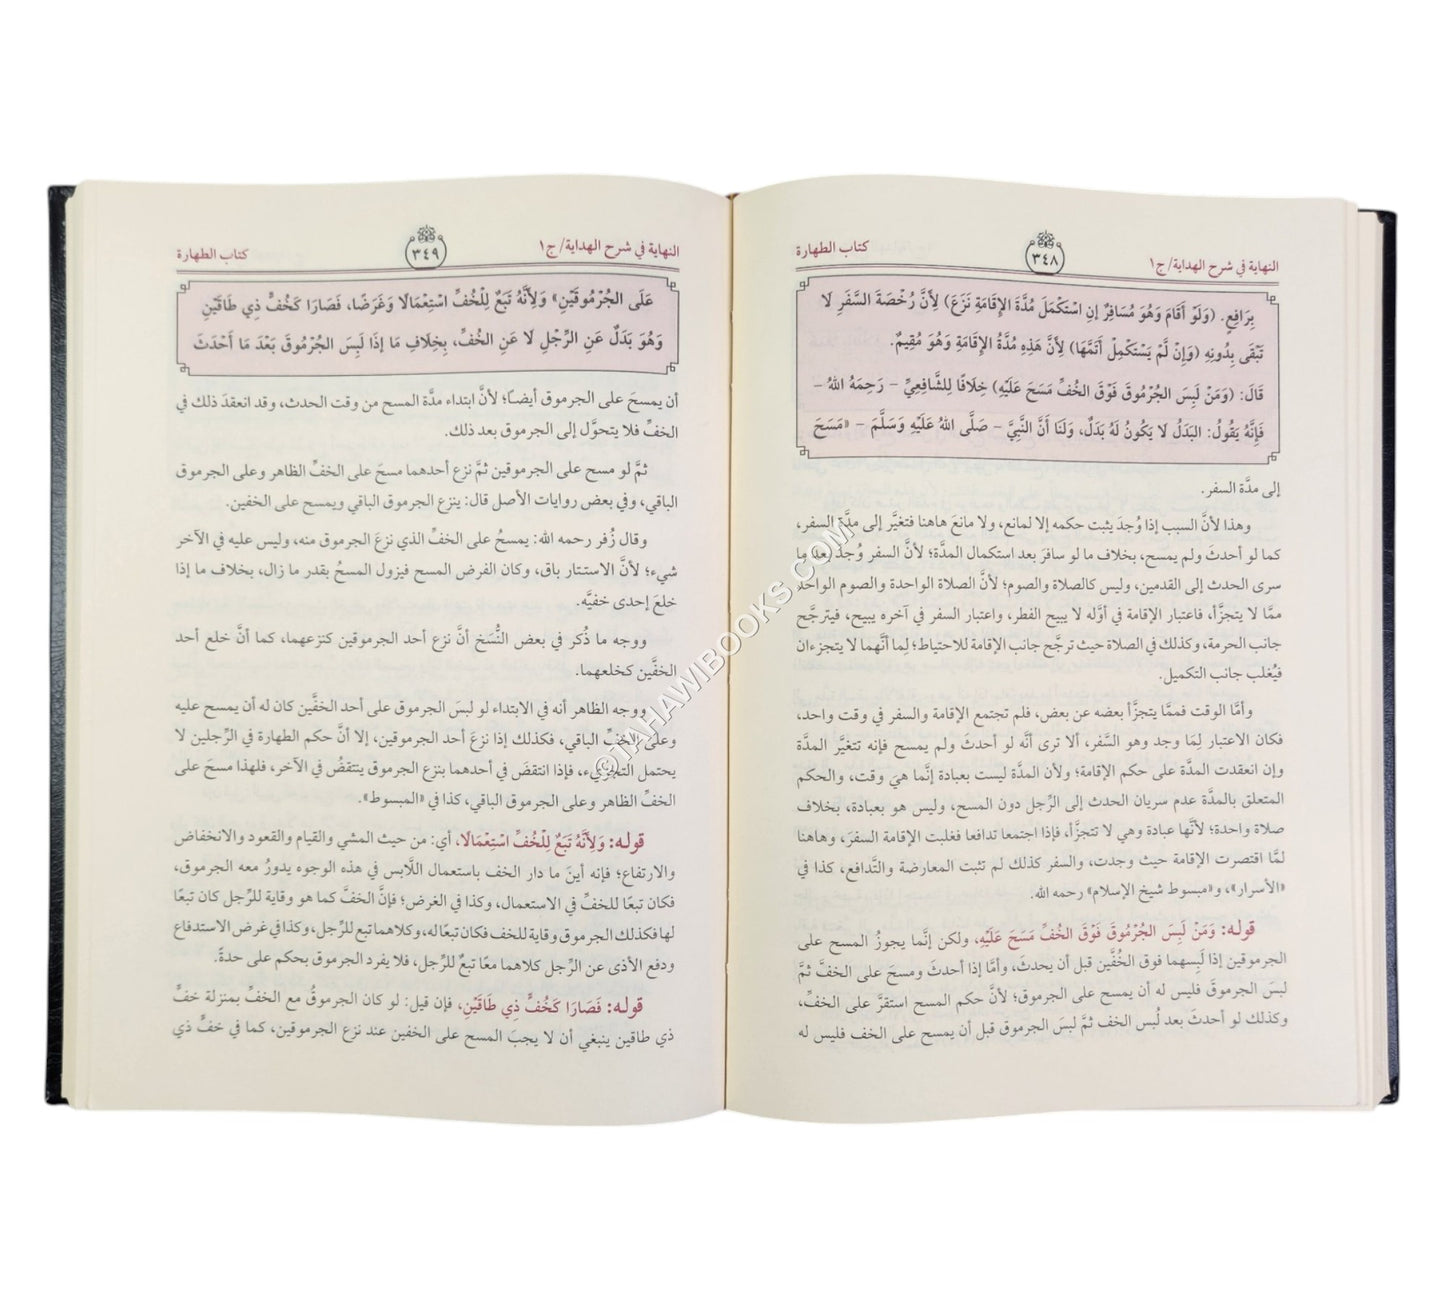 النهاية في شرح الهداية/ ج١
٣٤٨
كتاب الطهارة
بِرَافِعٍ. (وَلَوْ أَقَامَ وَهُوَ مُسَافِرٌ إِنِ اسْتَكْمَلَ مُدَّةَ الإِقَامَةِ نَزَعَ) لِأَنَّ رُخْصَةَ السَّفَرِ لَا
تَبْقَى بِدُونِهِ (وَإِنْ لَمْ يَسْتَكْمِلْ أَتَمَّهَا) لِأَنَّ هَذِهِ مُدَّةُ الإِقَامَةِ وَهُوَ مُقِيمٌ.
قَالَ: (وَمَنْ لَبِسَ الجُرْمُوقَ فَوْقَ الخُفِّ مَسَحَ عَلَيْهِ) خِلَافًا لِلشَّافِعِيِّ - رَحِمَهُ اللهُ -
فَإِنَّهُ يَقُولُ: البَدَلُ لَا يَكُونُ لَهُ بَدَلٌ، وَلَنَا أَنَّ النَّبِيَّ - صَلَّى اللهُ عَلَيْهِ وَسَلَّمَ - «مَسَحَ
إلى مدَّة السفر.
وهذا لأنَّ السبب إذا وُجدَ يثبت حكمه إلا لمانع، ولا مانعَ هاهنا فتغيَّر إلى مدَّة السفر،
كما لو أحدثَ ولم يمسح، بخلاف ما لو سافرَ بعد استكمال المدَّة؛ لأنَّ السفر وُجدَ بعد ما
سرى الحدث إلى القدمين، وليس كالصلاة والصوم؛ لأنَّ الصلاة الواحدة والصوم الواحد
ممَّا لا يتجزَّأ، فاعتبار الإقامة في أوَّله لا يبيح الفطر، واعتبار السفر في آخره يبيح، فيترجَّح
جانب الحرمة، وكذلك في الصلاة حيث ترجَّح جانب الإقامة للاحتياط؛ لِما أنَّهما لا يتجزءان
فيُغلب جانب التكميل.
وأمَّا الوقت فممَّا يتجزَّأ بعضه عن بعض، فلم تجتمع الإقامة والسفر في وقت واحد،
فكان الاعتبار لِمَا وجد وهو السَّفر، ألا ترى أنَّه لو أحدثَ ولم يمسح فإنه تتغيَّر المدَّة
وإن انعقدت المدَّة على حكم الإقامة؛ ولأن المدَّة ليست بعبادة إنَّما هيَ وقت، والحكم
المتعلق بالمدَّة عدم سريان الحدث إلى الرِّجل دون المسح، وليس هو بعبادة، بخلاف
صلاة واحدة؛ لأنَّها عبادة وهي لا تتجزَّأ، فإذا اجتمعا تدافعا فغلبت الإقامة السفرَ، وهاهنا
لمَّا اقتصرت الإقامة حيث وجدت، والسفر كذلك لم تثبت المعارضة والتَّدافع، كذا في
«الأسرار»، و«مبسوط شيخ الإسلام» رحمه الله.
قوله: وَمَنْ لَبِسَ الجُرْمُوقَ فَوْقَ الخُفِّ مَسَحَ عَلَيْهِ، ولكن إنَّما يجوزُ المسح على
الجرموقين إذا لَبِسهما فوق الخُفَّين قبل أن يحدث، وأمَّا إذا أحدثَ ومسحَ على الخفَّ ثمَّ
لبسَ الجرموقَ فليس له أن يمسح على الجرموق؛ لأنَّ حكم المسح استقرَّ على الخفِّ،
وكذلك لو أحدثَ بعد لُبس الخف ثمَّ لبسَ الجرموق قبل أن يمسح على الخف فليس له
النهاية في شرح الهداية/ ج١
٣٤٩
كتاب الطهارة
عَلَى الجُرْمُوقَيْنِ» وَلِأَنَّهُ تَبَعٌ لِلْخُفِّ اسْتِعْمَالًا وَغَرَضًا، فَصَارَا كَخُفٍّ ذِي طَاقَيْنِ
وَهُوَ بَدَلٌ عَنِ الرِّجْلِ لَا عَنِ الخُفِّ، بِخِلَافِ مَا إِذَا لَبِسَ الجُرْمُوقَ بَعْدَ مَا أَحْدَثَ
أن يمسحَ على الجرموق أيضـًا؛ لأنَّ ابتداء مدَّة المسح من وقت الحدث، وقد انعقدَ ذلك في
الخفِّ فلا يتحوَّل إلى الجرموق بعد ذلك.
ثمَّ لو مسح على الجرموقين ثمَّ نزع أحدهما مسحَ على الخفِّ الظاهر وعلى الجرموق
الباقي، وفي بعض روايات الأصل قال: ينزع الجرموق الباقي ويمسح على الخفين.
وقال زُفر رحمه الله: يمسحُ على الخفِّ الذي نزعَ الجرموق منه، وليس عليه في الآخر
شيء؛ لأنَّ الاستـتار باق، وكان الفرض المسح فيزول المسحُ بقدر ما زال، بخلاف ما إذا
خلعَ إحدى خفيَّه.
ووجه ما ذُكر في بعض النُّسَخ أنَّ نزع أحد الجرموقين كنزعهما، كما أنَّ خلع أحد
الخفَّين كخلعهما.
ووجه الظاهر أنه في الابتداء لو لبسَ الجرموق على أحد الخفَّين كان له أن يمسح عليه
وعلى الخفِّ الباقي، فكذلك إذا نزعَ أحد الجرموقين، إلا أنَّ حكم الطهارة في الرِّجلين لا
يحتمل التجزيء، فإذا انتقضَ في أحدهما بنزع الجرموق ينتقضُ في الآخر، فلهذا مسحَ على
الخفِّ الظاهر وعلى الجرموق الباقي، كذا في «المبسوط».
قوله: وَلِأَنَّهُ تَبَعٌ لِلْخُفِّ اسْتِعْمَالًا، أي: من حيث المشي والقيام والقعود والانخفاض
والارتفاع؛ فإنه أينَ ما دار الخف باستعمال اللَّابس في هذه الوجوه يدورُ معه الجرموق،
فكان تبعًا للخفِّ في الاستعمال، وكذا في الغرض؛ فإنَّ الخفَّ كما هو وقاية للرِّجل كان تبعًا
لها فكذلك الجرموق وقاية للخف فكان تبعًا له، وكلاهما تبع للرِّجل، وكذا في غرض الاستدفاع
ودفع الأذى عن الرِّجل كلاهما معًا تبعٌ للرِّجل، فلا يفرد الجرموق بحكم على حدةَ.
قوله: فَصَارَا كَخُفٍّ ذِي طَاقَيْنِ، فإن قيل: لو كان الجرموقُ مع الخفِّ بمنزلة خفٍّ
ذي طاقين ينبغي أن لا يجبَ المسح على الخفين عند نزع الجرموقين، كما في خفٍّ ذي
©TAHAWIBOOKS.COM